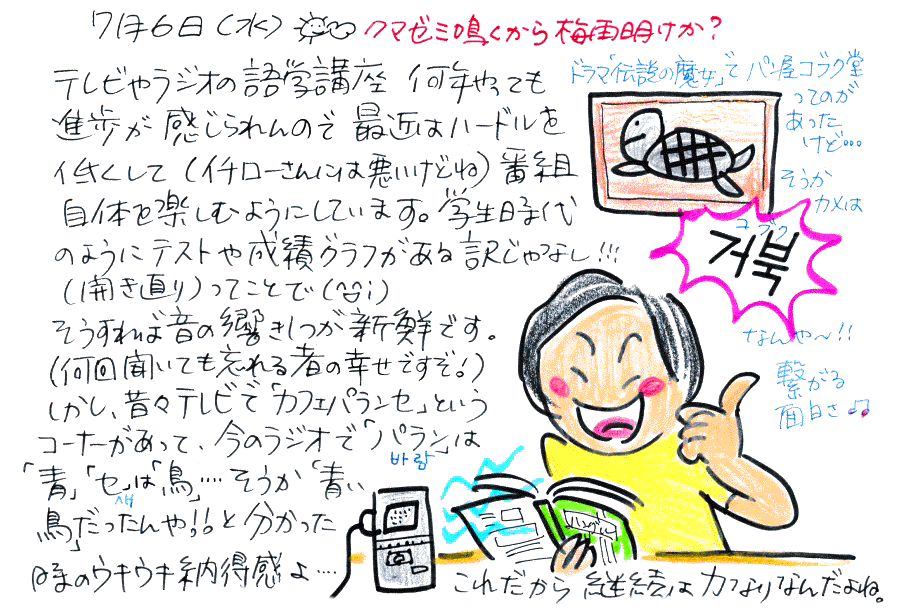 7月6日(水)
クマゼミ鳴くから梅雨明けか?
テレビやラジオの語学講座 何年やっても
進歩が感じられんので最近はハードルを
低くして(イチローさんには悪いけどね)番組
自体を楽しむようにしています。学生時代
のようにテストや成績グラフがある訳じゃなし!!!
(開き直り)ってことで(^^;)
そうすれば音の響き1つが新鮮です。
(何回聞いても忘れる者の幸せですぞ!)
しかし、昔々テレビで「カフェパランセ」という
コーナーがあって、今のラジオで「パラン」は
바람
「青」「セ」は「鳥」‥‥そうか「青い
새
鳥」だったんや!!と分かった
時のウキウキ納得感よ‥‥
ドラマ「伝説の魔女」でパン屋コブク堂
ってのが
あった
けど…
そうか
カメは
コブク
북
なんや〜!!
繋がる
面白さ♪♪
ハングル
これだから継続は力なりなんだよね。